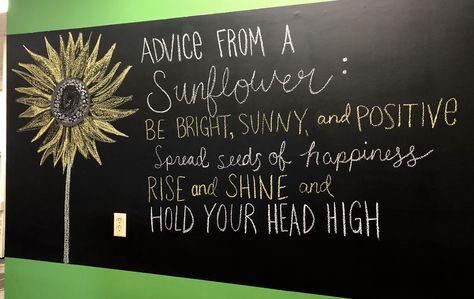 ADVICE FROM A
Sunflower:
BE BRIGHT, SUNNY, and POSITIVE
Spread seeds of happiness
RISE and SHINE and
HOLD YOUR HEAD HIGH